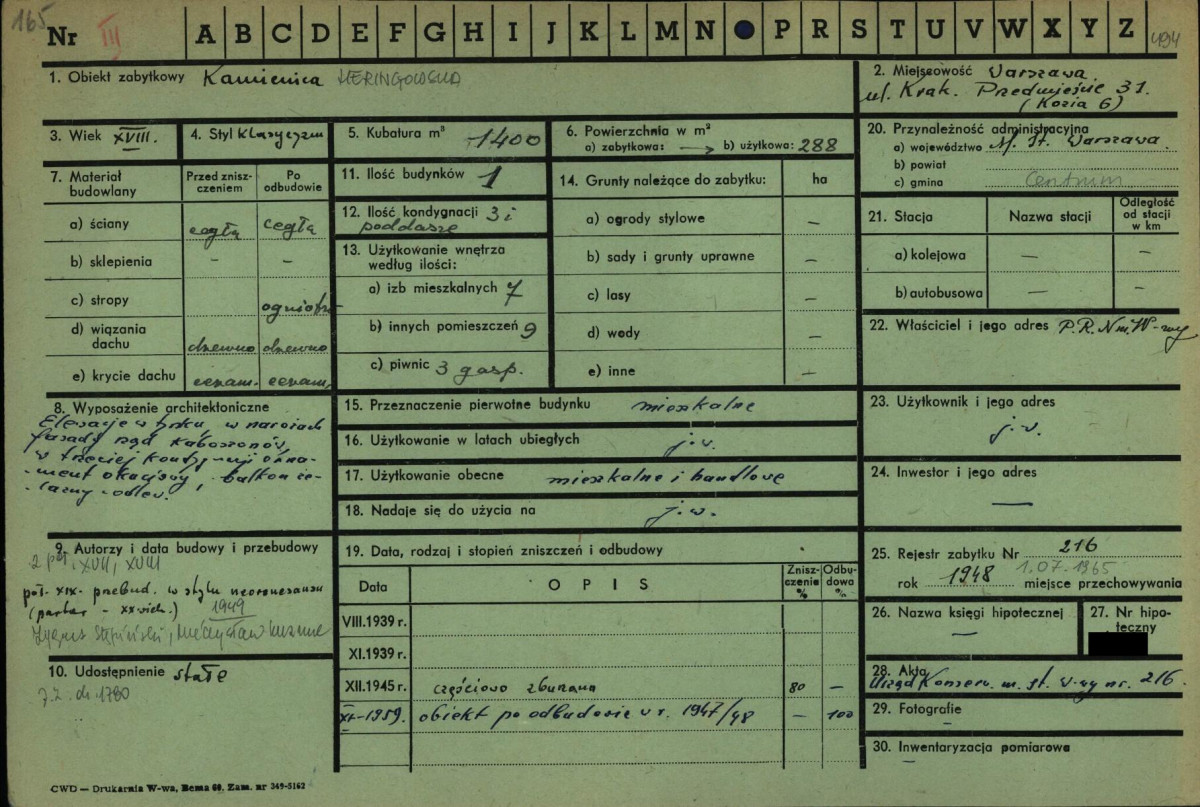 165
Nr III A B C D E F G H I J K L M N P R S T U V W X Y Z 494
1. Obiekt zabytkowy Kamienica HERINGOWSKA
2. Miejscowość Warszawa
ul. Krak. Przedmieście 31.
(Kozia 6)
3. Wiek XVIII.
4. Styl Klasycyzm
5. Kubatura m³ 1400
6. Powierzchnia w m²
a) zabytkowa: → b) użytkowa: 288
7. Materiał budowlany
Przed zniszczeniem
Po odbudowie
a) ściany cegła cegła
b) sklepienia – –
c) stropy ogniotr
d) wiązania dachu drzewno drzewno
e) krycie dachu ceram. ceram.
8. Wyposażenie architektoniczne
Elewacje w tynku, w narożach
fasady rząd kaboszonów,
w trzeciej kondygnacji orna-
-ment okuciowy, balkon że-
-lazny-odlew.
9. Autorzy i data budowy i przebudowy
2 poł. XVII, XVIII
poł. XIX - przebud. w stylu neorenesansu
(parter - XX wiek.) 1949
Zygmunt Stępiński, Mieczysław Kuzma
10. Udostępnienie stałe
J.Z. dr 1780
11. Ilość budynków 1
12. Ilość kondygnacji 3 i
poddasze
13. Użytkowanie wnętrza
według ilości:
a) izb mieszkalnych 7
b) innych pomieszczeń 9
c) piwnic 3 gosp.
14. Grunty należące do zabytku: ha
a) ogrody stylowe –
b) sady i grunty uprawne –
c) lasy –
d) wody –
e) inne –
15. Przeznaczenie pierwotne budynku mieszkalne
16. Użytkowanie w latach ubiegłych j.w.
17. Użytkowanie obecne mieszkalne i handlowe
18. Nadaje się do użycia na j.w.
19. Data, rodzaj i stopień zniszczeń i odbudowy
Data OPIS Zniszczenie % Odbudowa %
VIII.1939 r.
XI.1939 r.
XII.1945 r. częściowo zburzona 80 –
XI-1959. obiekt po odbudowie w r. 1947/48 – 100
20. Przynależność administracyjna
a) województwo M. St. Warszawa.
b) powiat
c) gmina Centrum
21. Stacja Nazwa stacji Odległość od stacji w km
a) kolejowa – –
b) autobusowa – –
22. Właściciel i jego adres P.R.N m. W-wy
23. Użytkownik i jego adres
j.w.
24. Inwestor i jego adres
–
25. Rejestr zabytku Nr 216
1.07.1965
rok 1948 miejsce przechowywania
26. Nazwa księgi hipotecznej
–
27. Nr hipoteczny
28. Akta
Urząd Konserw. m. st. W-wy nr. 216.
29. Fotografie
–
30. Inwentaryzacja pomiarowa
–
CWD — Drukarnia W-wa, Bema 60. Zam. nr 349-5162